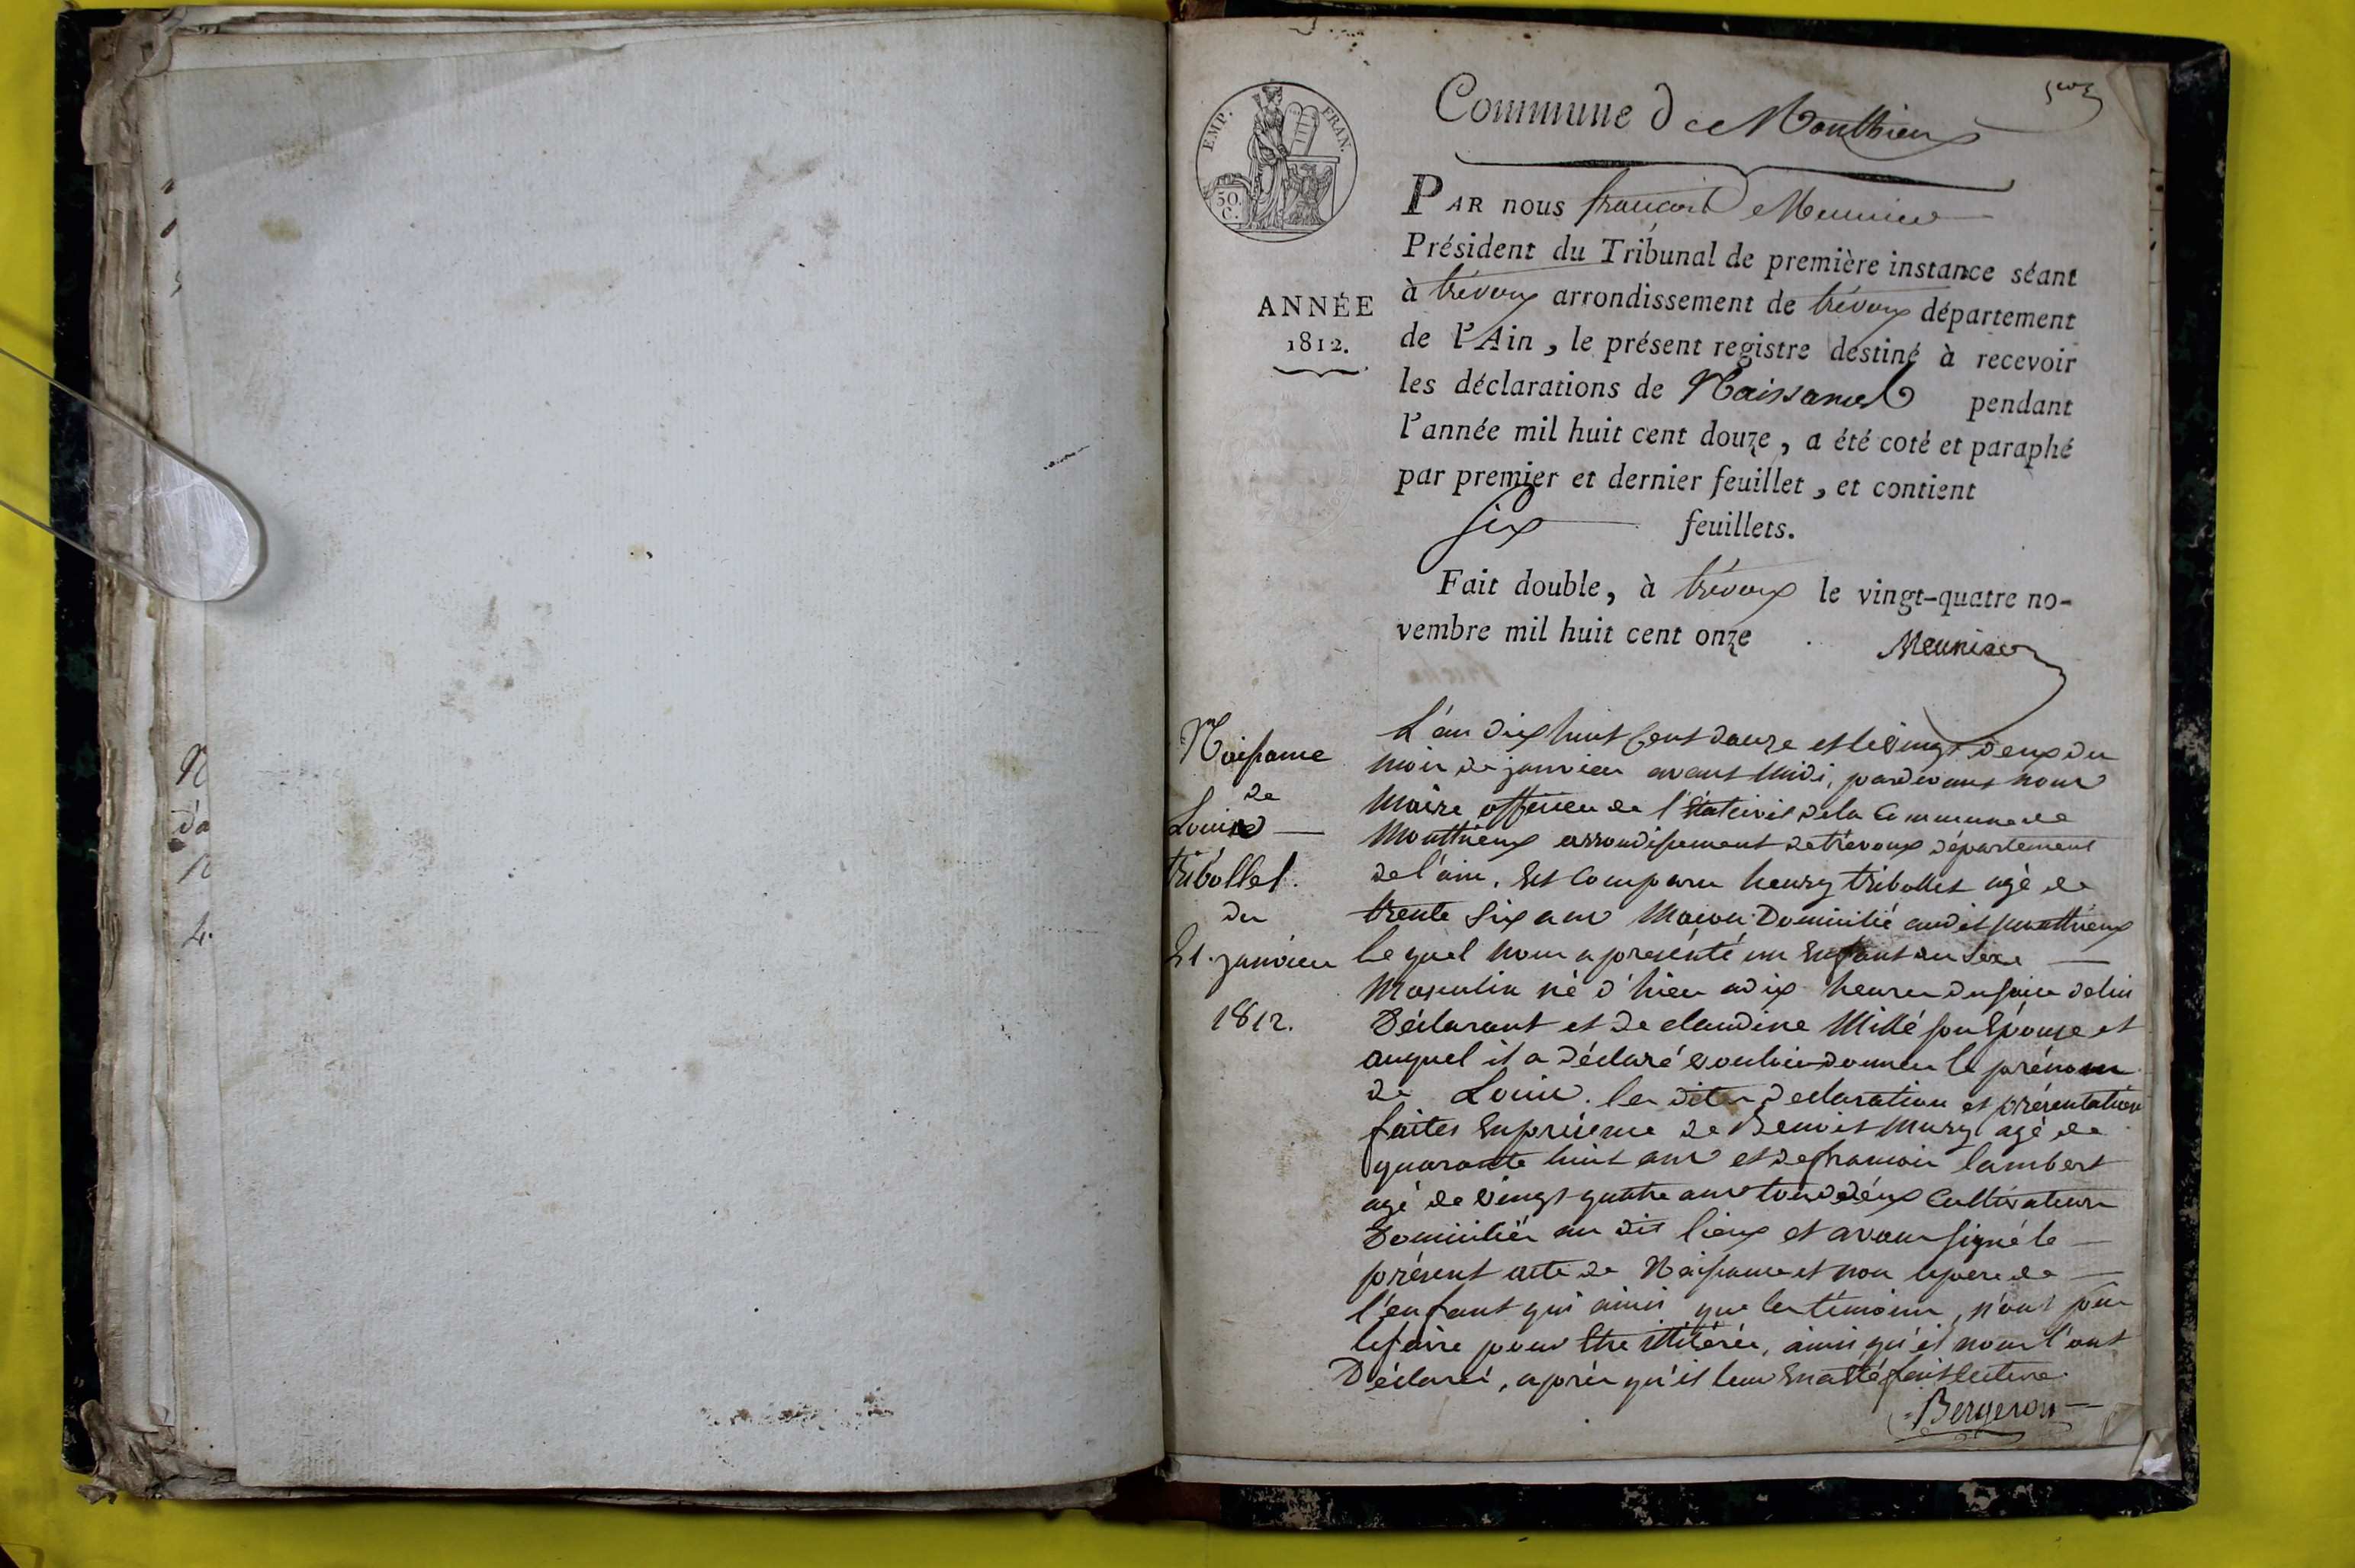 Commune de Monthieux
EMP. FRAN.
50.
C.
PAR nous françois Meunier
Président du Tribunal de première instance séant
à trévoux arrondissement de trévoux département
ANNÉE
1812.
de l'Ain, le présent registre destiné à recevoir
les déclarations de Naissances pendant
l'année mil huit cent douze, a été coté et paraphé
par premier et dernier feuillet, et contient
six feuillets.
Fait double, à trévoux le vingt-quatre no-
vembre mil huit cent onze
Meunier
Naissance
de
Louis
tribollet.
du
21. janvier
1812.
L'an dix huit cent douze et le vingt deux du
mois de janvier avant midi, pardevant nous
Maire officier de l'état civil de la Commune de
Monthieux arrondissement de trévoux département
de l'ain. Est comparu henry tribollet agé de
trente six ans Maçon Domicilié audit monthieux
Lequel nous a présenté un Enfant du sexe
Masculin né d'hier a dix heures du soir de lui
Déclarant et de claudine Millé son Epouse et
auquel il a déclaré vouloir donner le prénom
de Louis. les dites declaration et présentation
faites En présence de Benoit Mury agé de
quarante huit ans et de francois lambert
agé de vingt quatre ans tous deux Cultivateurs
Domiciliés au dit lieux et avons signé le
présent acte de Naissance et non le père de
l'enfant qui ainsi que les témoins, n'ont peu
le faire pour Etre illitérés, ainsi qu'il nous l'ont
Déclaré, après qu'il leur En a Eté fait lecture.
Bergeron
N
da
N